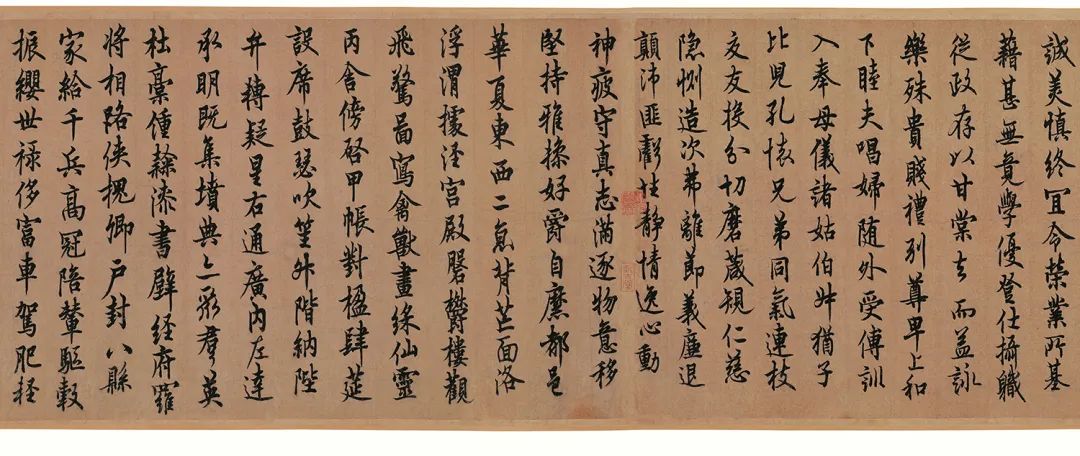 誠美慎終宜令榮業所基
藉甚無竟學優登仕攝職
從政存以甘棠去而益詠
樂殊貴賤禮別尊卑上和
下睦夫唱婦隨外受傅訓
入奉母儀諸姑伯叔猶子
比兒孔懷兄弟同氣連枝
交友投分切磨箴規仁慈
隱惻造次弗離節義廉退
顛沛匪虧性靜情逸心動
神疲守真志滿逐物意移
堅持雅操好爵自縻都邑
華夏東西二京背芒面洛
浮渭據涇宮殿磐欝樓觀
飛驚圖寫禽獸畫綵仙靈
丙舍傍啓甲帳對楹肆筵
設席鼓瑟吹笙升階納陛
弁轉疑星右通廣內左達
承明既集墳典亦聚羣英
杜稾鍾隸漆書壁經府羅
將相路俠槐卿戶封八縣
家給千兵高冠陪輦驅轂
振纓世祿侈富車駕肥輕